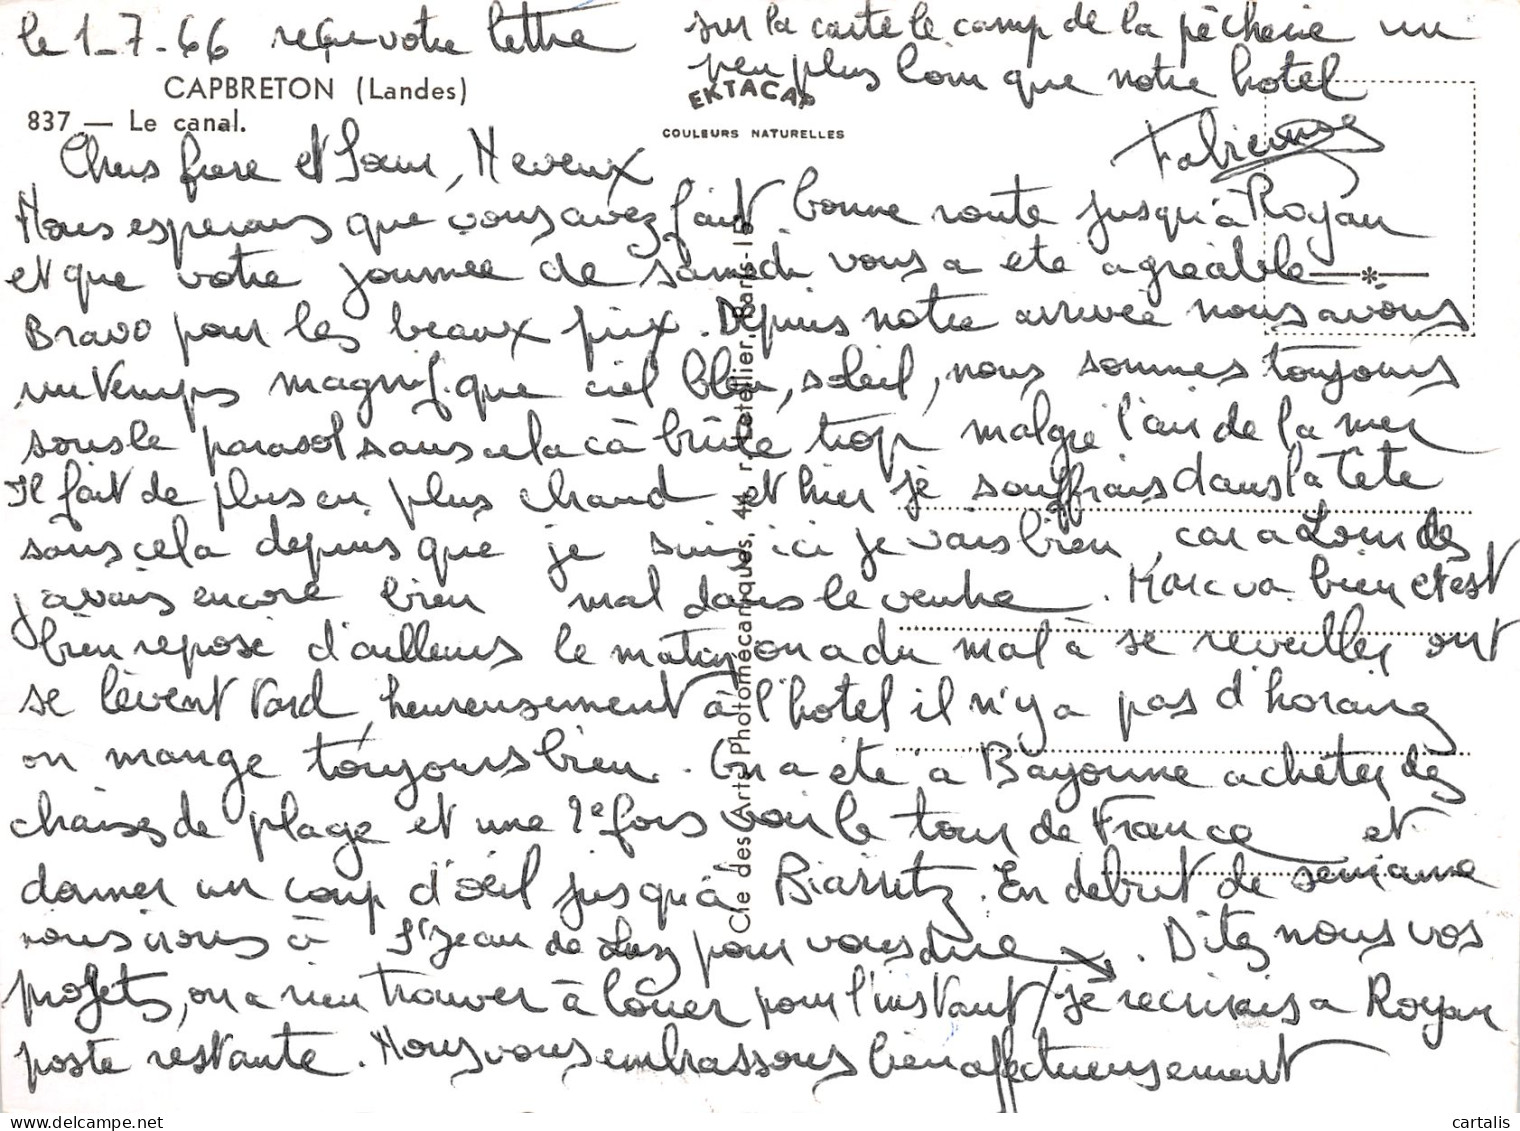 le 1-7-66 reçu votre lettre
sur la carte le camp de la pêcherie un
peu plus loin que notre hotel
CAPBRETON (Landes)
837 — Le canal.
EKTACAP
COULEURS NATURELLES
Fabienne
Chers frere et Soeur, Neveux
Nous esperons que vous avez fait bonne route jusqu'à Royan
et que votre journée de samedi vous a ete agréable
Bravo pour les beaux prix. Depuis notre arrivée nous avons
un temps magnifique ciel bleu, soleil, nous sommes toujours
sous le parasol sans cela cà brûle trop malgre l'air de la mer
Il fait de plus en plus chaud et hier je souffrais dans la tete
sans cela depuis que je suis ici je vais bien, car a Lourdes
j'avais encore bien mal dans le ventre. Marc va bien et est
bien reposé d'ailleurs le matin on a du mal à se reveiller ont
se lèvent tard, heureusement à l'hotel il n'y a pas d'horaire
on mange toujours bien. On a ete a Bayonne acheter des
chaises de plage et une 2e fois voir le tour de France et
donner un coup d'oeil jusqu'à Biarritz. En debut de semaine
nous irons à St Jean de Luz pour vous dire. Dites nous vos
projets, on a rien trouver à louer pour l'instant / je recrirais a Royan
poste restante. Nous vous embrassons bien affectueusement
Cie des Arts Photomécaniques, 44, r. Letellier, Paris-15
cartalis
www.delcampe.net